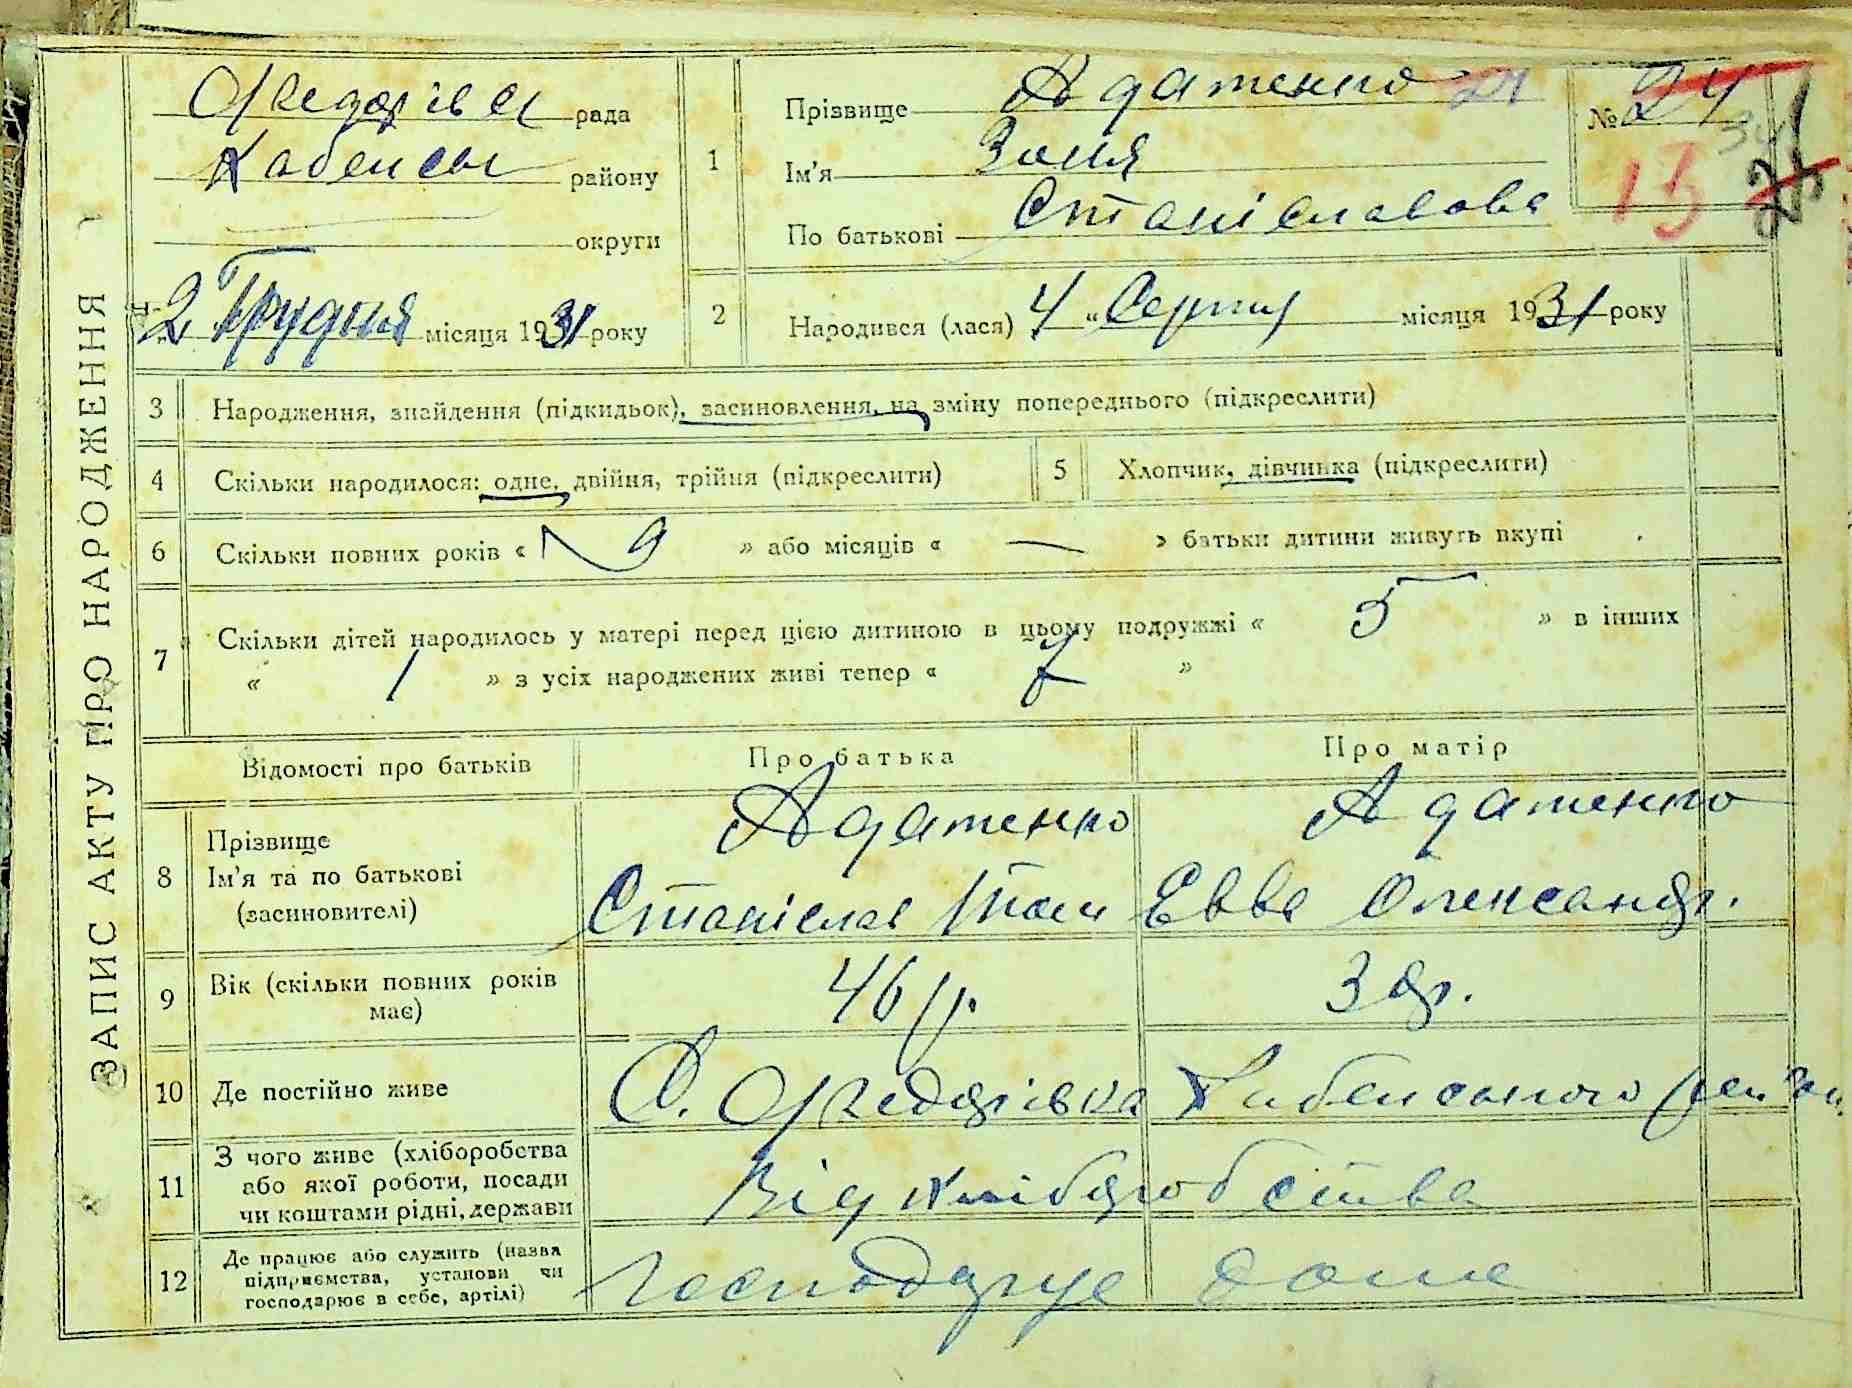 ЗАПИС АКТУ ПРО НАРОДЖЕННЯ
Федорівка рада
Хабенськ району
округи
„2" Грудня місяця 1931 року
1
Прізвище Адаменко
Ім'я Зоня
По батькові Станіславова
№ 24
34
15
2
Народився (лася) 4 „ Серпня місяця 1931 року
3 Народження, знайдення (підкидьок), засиновлення, на зміну попереднього (підкреслити)
4 Скільки народилося: одне, двійня, трійня (підкреслити)
5 Хлопчик, дівчинка (підкреслити)
6 Скільки повних років « 9 » або місяців « — » батьки дитини живуть вкупі
7 Скільки дітей народилось у матері перед цією дитиною в цьому подружжі « 5 » в інших
« 1 » з усіх народжених живі тепер « »
Відомості про батьків Про батька Про матір
8 Прізвище
Ім'я та по батькові
(засиновителі)
Адаменко Адаменко
Станіслав Евва Олександр.
9 Вік (скільки повних років
має)
46 р. 38р.
10 Де постійно живе С. Федорівка Хабенського район
11 З чого живе (хліборобства
або якої роботи, посади
чи коштами рідні, держави
Від хліборобства
12 Де працює або служить (назва
підприємства, установи чи
господарює в себе, артілі)
Господарує дома